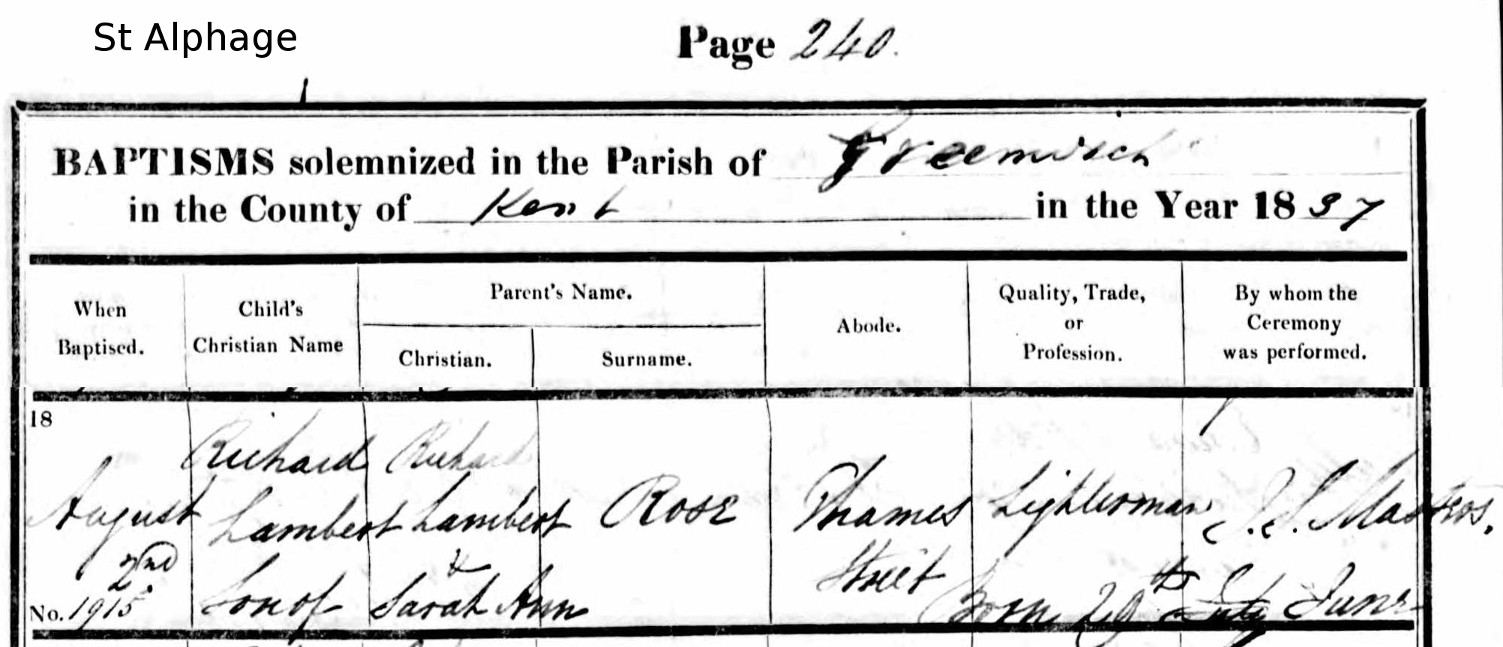 St Alphage
Page 240.
BAPTISMS solemnized in the Parish of Greenwich
in the County of Kent in the Year 1837
When Baptised.
Child's Christian Name
Parent's Name.
Christian.
Surname.
Abode.
Quality, Trade, or Profession.
By whom the Ceremony was performed.
18
August
2nd
No. 1915
Richard
Lambert
Son of
Richard
Lambert
&
Sarah Ann
Rose
Thames
Street
Lighterman
Born 29th July June